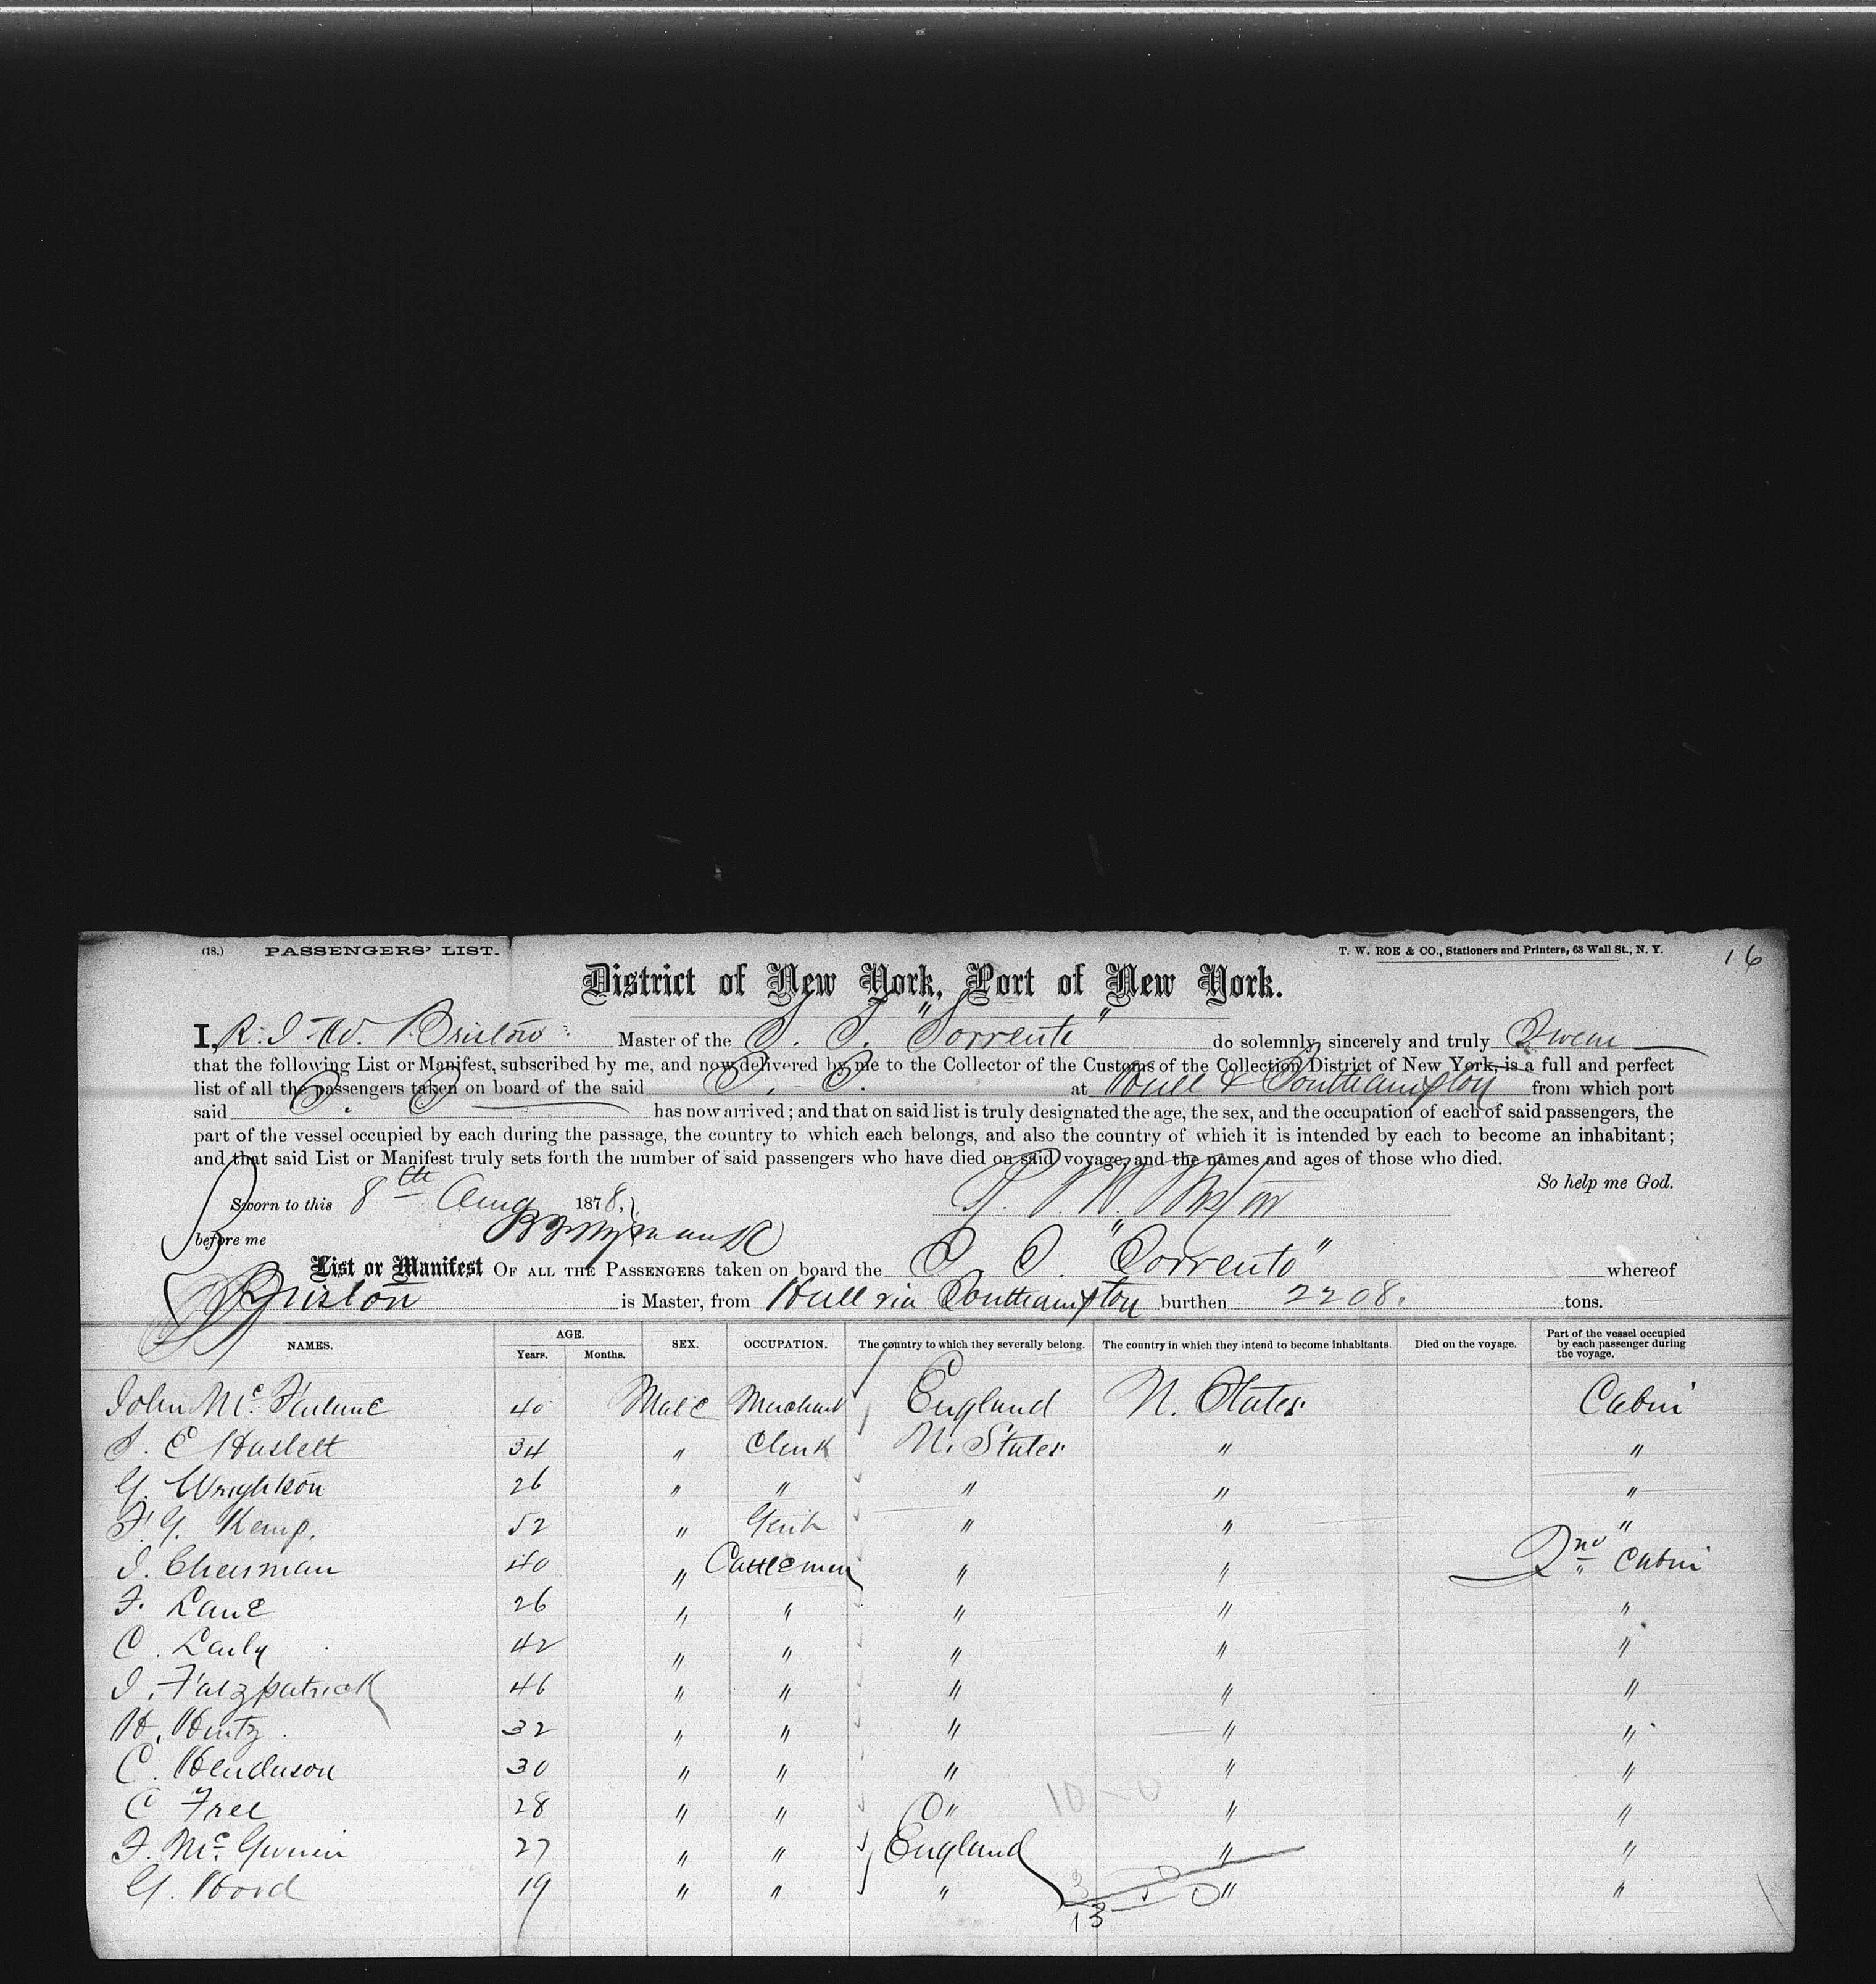 (18.) PASSENGERS' LIST. T. W. ROE & CO., Stationers and Printers, 63 Wall St., N. Y. 16
District of New York, Port of New York.
I, R. J. W. Bristow Master of the S. S. "Sorrento" do solemnly, sincerely and truly Swear
that the following List or Manifest, subscribed by me, and now delivered by me to the Collector of the Customs of the Collection District of New York, is a full and perfect
list of all the passengers taken on board of the said S. S. at Hull & Southampton from which port
said S. S. has now arrived; and that on said list is truly designated the age, the sex, and the occupation of each of said passengers, the
part of the vessel occupied by each during the passage, the country to which each belongs, and also the country of which it is intended by each to become an inhabitant;
and that said List or Manifest truly sets forth the number of said passengers who have died on said voyage, and the names and ages of those who died.
So help me God.
Sworn to this 8th Aug 1878,
before me
List or Manifest OF ALL THE PASSENGERS taken on board the S. S. "Sorrento" whereof
Bristow is Master, from Hull via Southampton burthen 2208. tons.
NAMES. AGE. Years. Months. SEX. OCCUPATION. The country to which they severally belong. The country in which they intend to become inhabitants. Died on the voyage. Part of the vessel occupied by each passenger during the voyage.
John Mc. Farlane 40 Male Merchant England U. States Cabin
S. E Haslett 34 " Clerk U. States " "
G. Wrightson 26 " " " " "
F. G. Kemp. 52 " " " "
J. Cheesman 40 " Cattlemen " " 2nd Cabin
F. Lane 26 " " " " "
C. Early 42 " " " " "
J. Fitzpatrick 46 " " " " "
H. Hintz 32 " " " " "
C. Henderson 30 " " " " "
C Free 28 " " " 10 - 0 " "
F. Mc. 27 " " England " "
G. Hord 19 " " " 3 0 " "
13 - 0